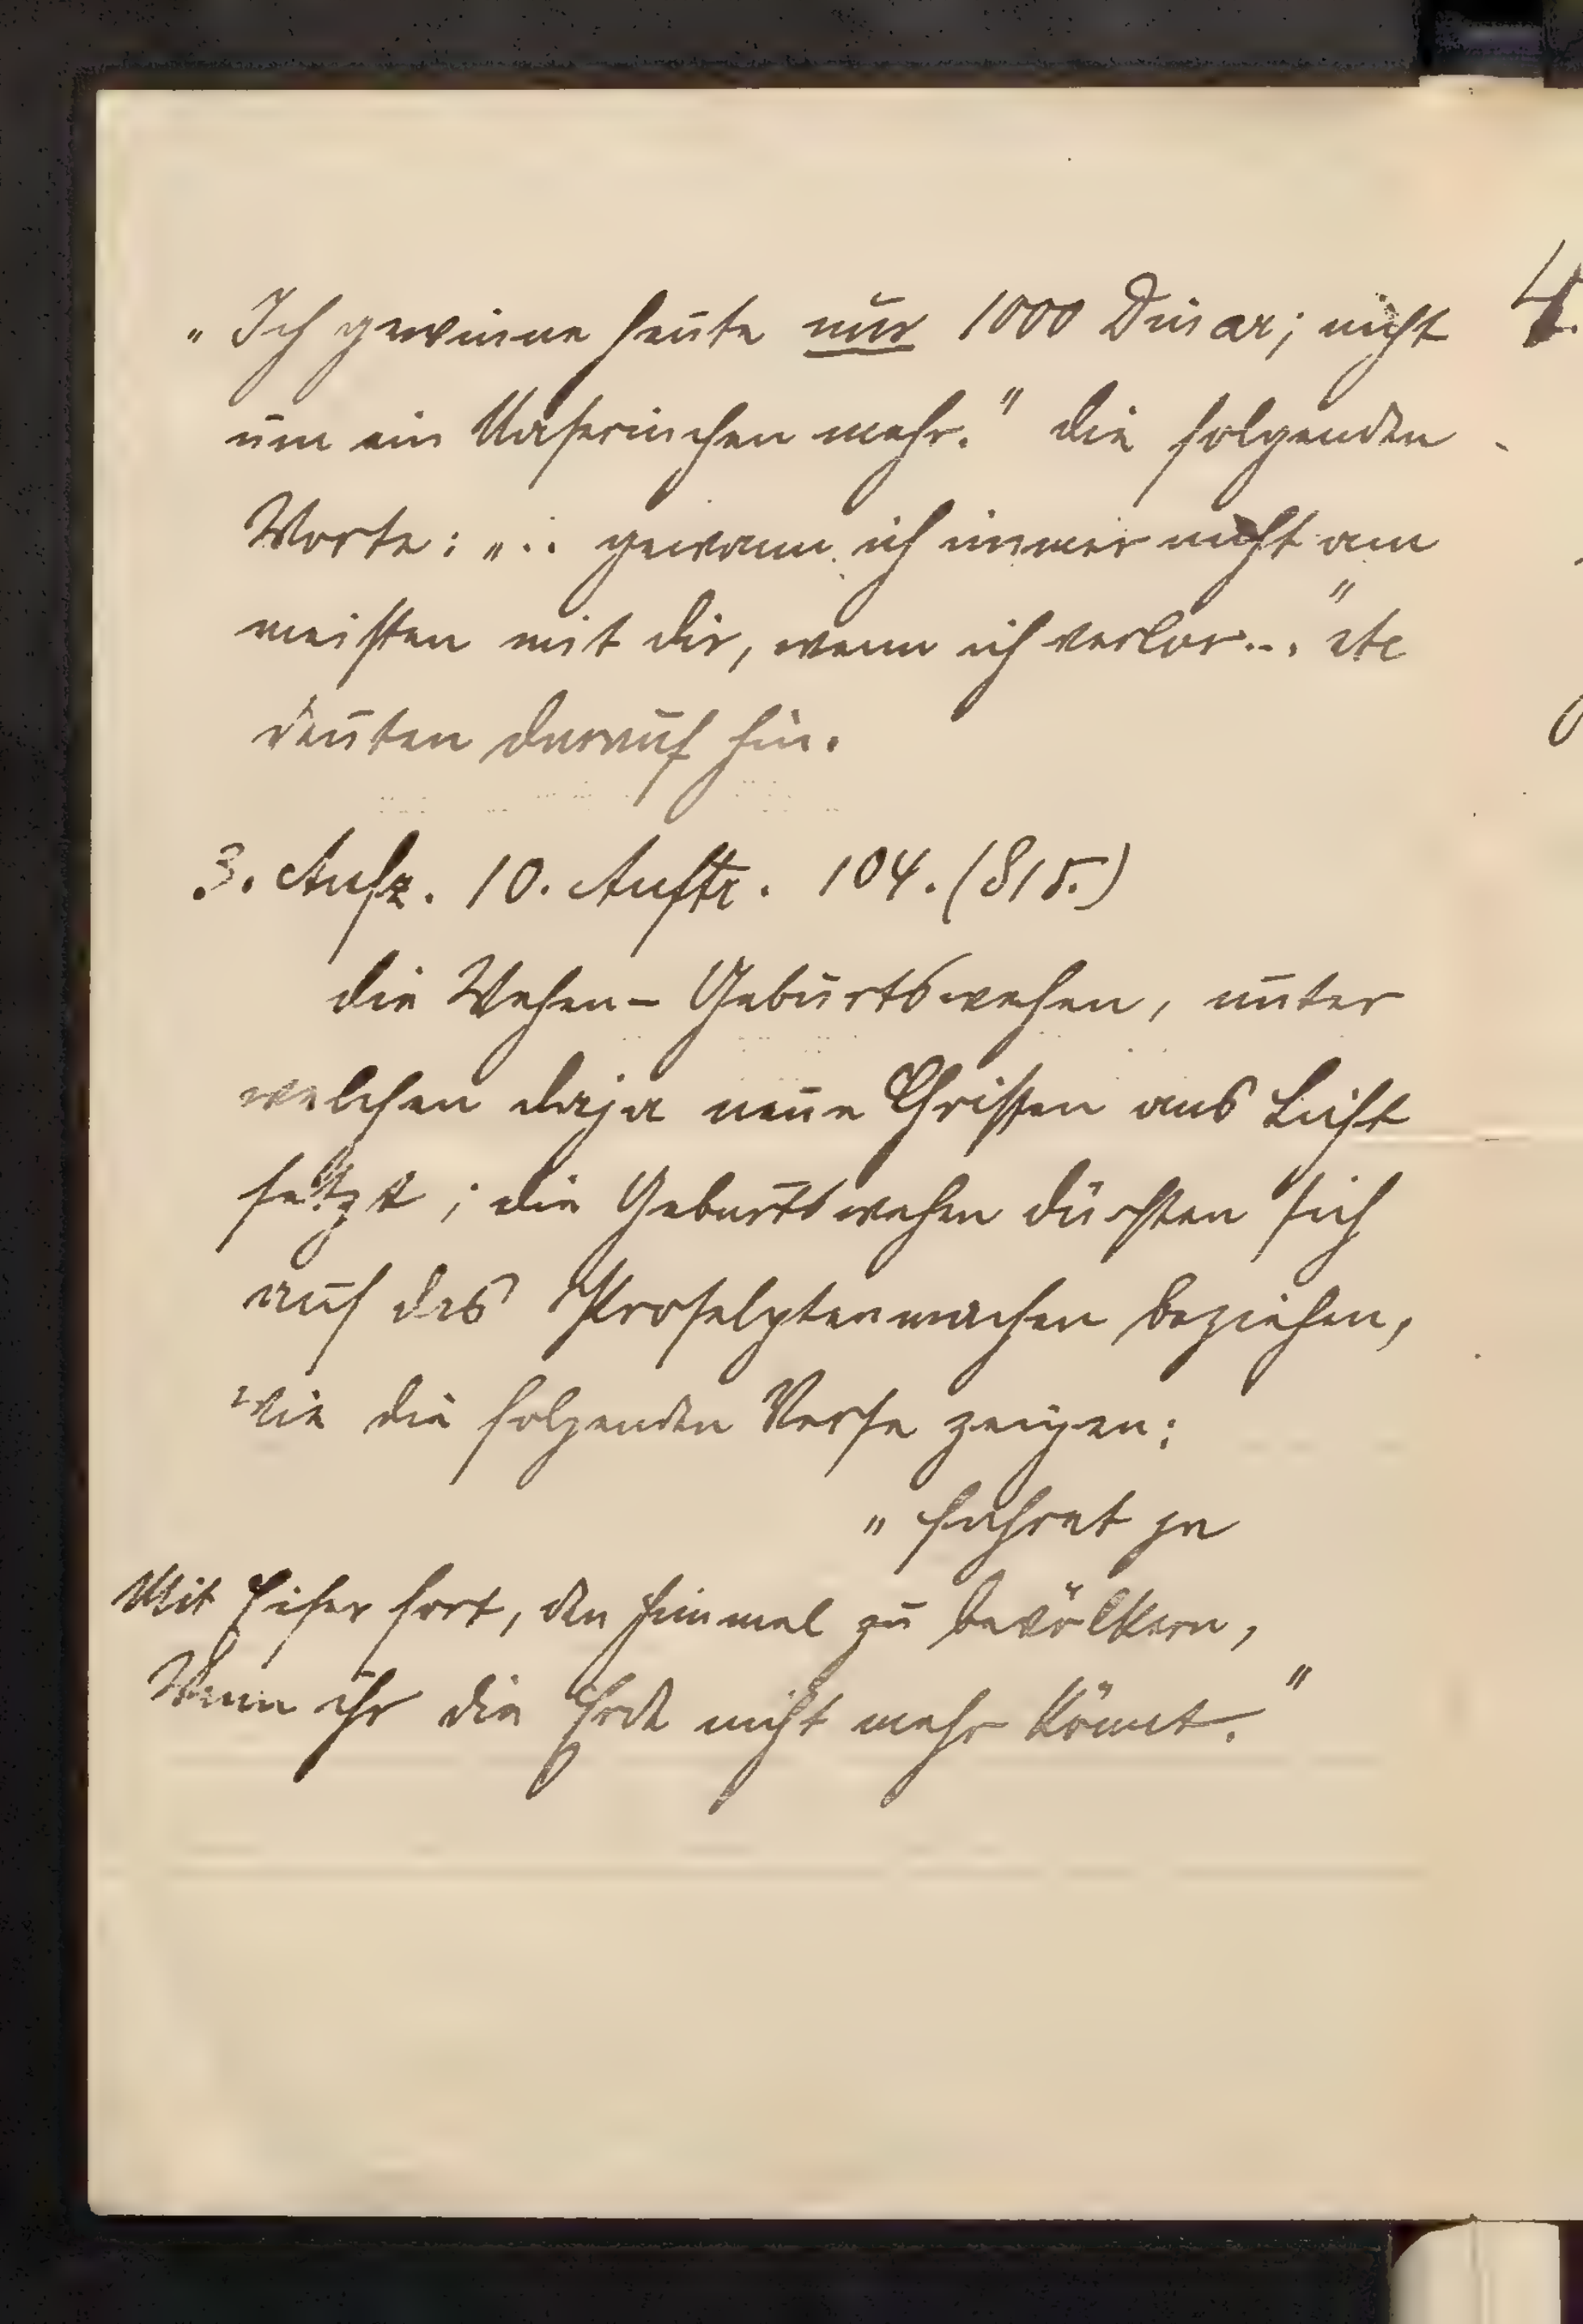 „Ich gewinne heute nur 1000 Dinar; nicht
um ein Naserinchen mehr." die folgenden
Worte: „.. gewann ich immer nicht am
meisten mit dir, wenn ich verlor..." etc
deuten darauf hin.
3. Aufz. 10. Auftr. 104. (815.)
die Wehen – Geburtswehen, unter
welchen daja neue Christen ans Licht
setzt; die Geburtswehen dürften sich
auf das Proselytenmachen beziehen,
wie die folgenden Verse zeigen:
„fahret ja
Mit Eifer fort, den Himmel zu bevölkern,
Wenn ihr die Erde nicht mehr könnt."
4.